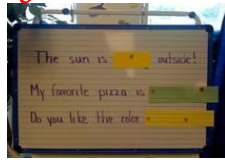 The sun is outside!
My favorite pizza is
Do you like the color